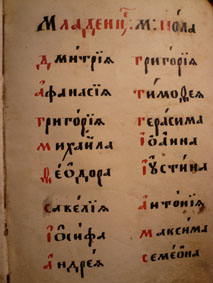 Младенц: М: Нола
Дмитрїѧ
Аѳанасїѧ
Григорїѧ
Михаила
Ѳеѡдора
Савелїѧ
Іѡсифа
Андреѧ
Григорїѧ
Тимоѳеѧ
Герасима
Іѡанна
Іꙋстина
Антонїѧ
Максима
Симеѡна